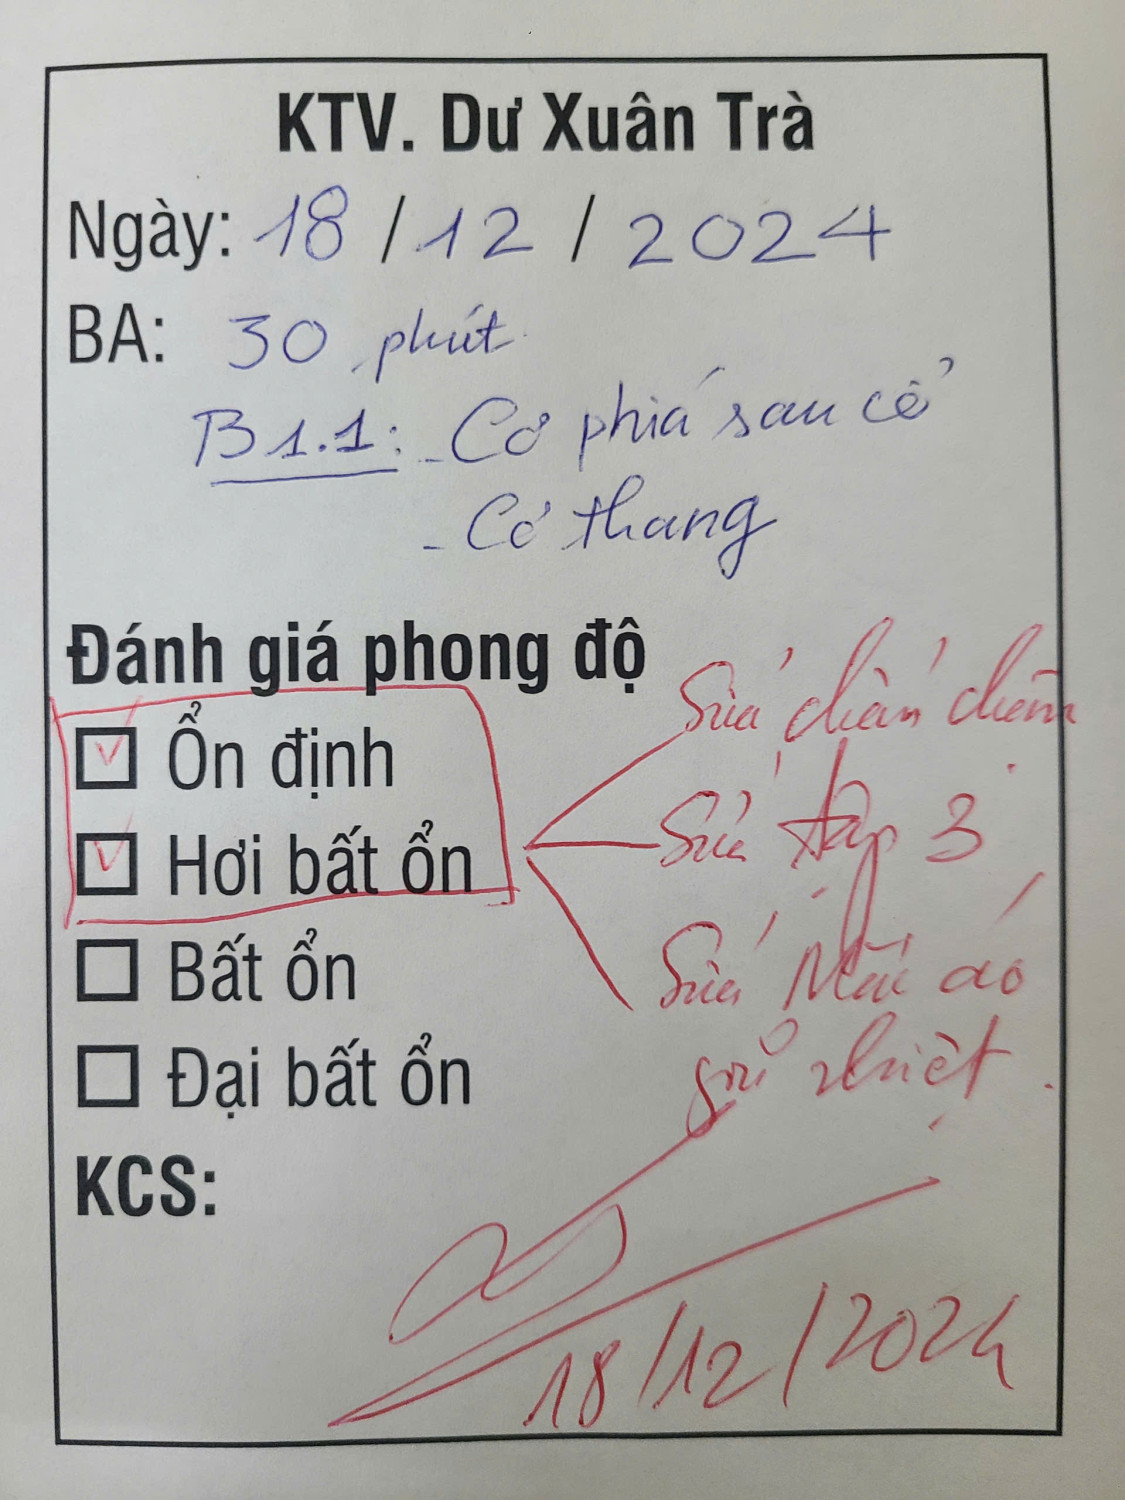 KTV. Dư Xuân Trà
Ngày: 18 / 12 / 2024
BA: 30 phút
B1.1: - Cơ phía sau cổ
- Cơ thang
Đánh giá phong độ
☑ Ổn định
☑ Hơi bất ổn
☐ Bất ổn
☐ Đại bất ổn
Sửa chân
Sửa tập 3
Sửa áo
giữ nhiệt.
KCS:
18/12/2024